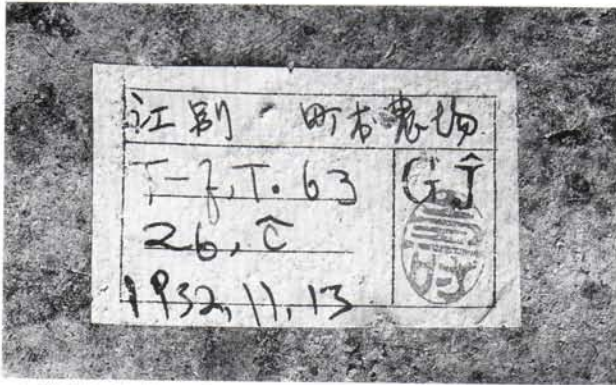 江別・町村農場
T-f, T. 63
GĴ
26, ĉ
1932, 11, 13